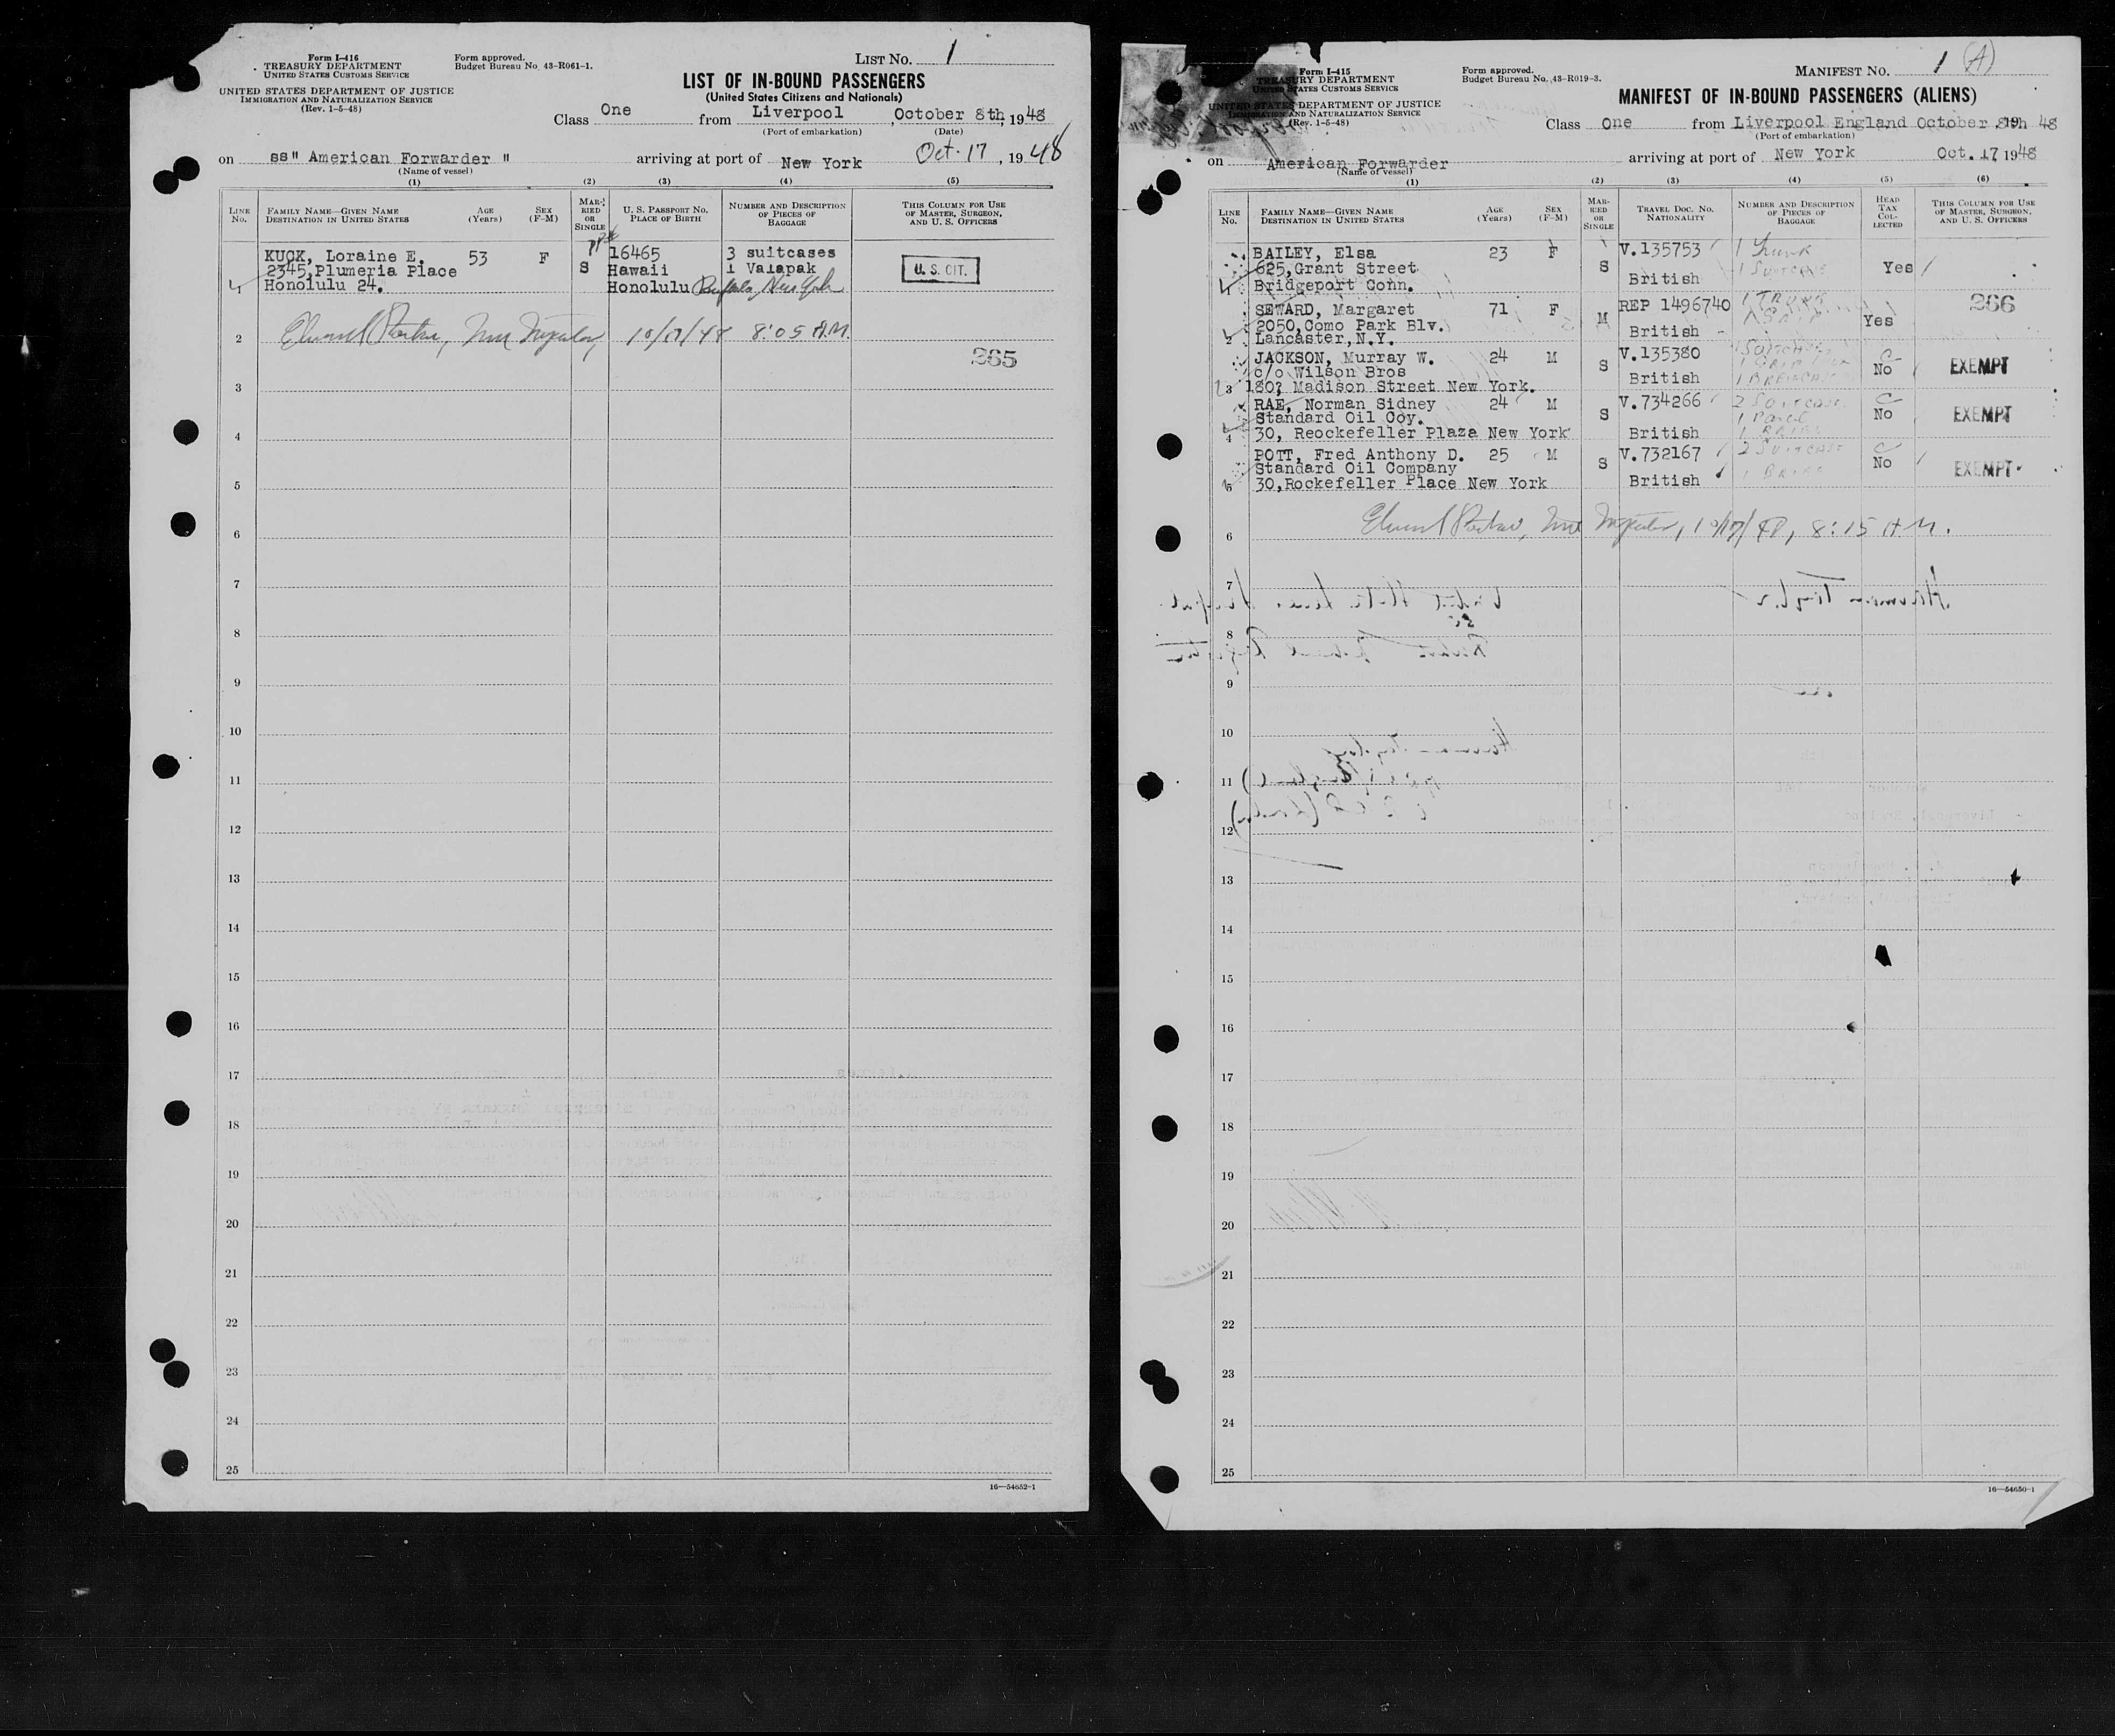 Form I-416
TREASURY DEPARTMENT
UNITED STATES CUSTOMS SERVICE
UNITED STATES DEPARTMENT OF JUSTICE
IMMIGRATION AND NATURALIZATION SERVICE
(Rev. 1-5-48)
Form approved.
Budget Bureau No. 43-R061-1.
LIST NO. 1
LIST OF IN-BOUND PASSENGERS
(United States Citizens and Nationals)
Class One from Liverpool, October 8th, 1948
(Port of embarkation) (Date)
on ss" American Forwarder " arriving at port of New York Oct. 17, 1948
(Name of vessel)
(1) (2) (3) (4) (5)
LINE NO.
FAMILY NAME—GIVEN NAME
DESTINATION IN UNITED STATES
AGE (Years)
SEX (F-M)
MARRIED OR SINGLE
U. S. PASSPORT NO.
PLACE OF BIRTH
NUMBER AND DESCRIPTION OF PIECES OF BAGGAGE
THIS COLUMN FOR USE OF MASTER, SURGEON, AND U. S. OFFICERS
KUCK, Loraine E. 53 F S 16465 3 suitcases
2345,Plumeria Place Hawaii 1 Valapak U. S. CIT.
1 Honolulu 24. Honolulu Buffalo, New York
2 10/17/48 8:05 A.M.
265
3
4
5
6
7
8
9
10
11
12
13
14
15
16
17
18
19
20
21
22
23
24
25
16—54652-1
Form I-415
TREASURY DEPARTMENT
UNITED STATES CUSTOMS SERVICE
UNITED STATES DEPARTMENT OF JUSTICE
IMMIGRATION AND NATURALIZATION SERVICE
(Rev. 1-5-48)
Form approved.
Budget Bureau No. 43-R019-3.
MANIFEST NO. 1 (A)
MANIFEST OF IN-BOUND PASSENGERS (ALIENS)
Class One from Liverpool England October 8th 1948
(Port of embarkation)
on American Forwarder arriving at port of New York Oct. 17 1948
(Name of vessel)
(1) (2) (3) (4) (5) (6)
LINE NO.
FAMILY NAME—GIVEN NAME
DESTINATION IN UNITED STATES
AGE (Years)
SEX (F-M)
MARRIED OR SINGLE
TRAVEL DOC. NO.
NATIONALITY
NUMBER AND DESCRIPTION OF PIECES OF BAGGAGE
HEAD TAX COLLECTED
THIS COLUMN FOR USE OF MASTER, SURGEON, AND U. S. OFFICERS
BAILEY, Elsa 23 F S V.135753 1 Trunk
625,Grant Street 1 Suitcase Yes
1 Bridgeport Conn. British
SEWARD, Margaret 71 F M REP 1496740 1 TRUNK 266
2050,Como Park Blv. British Yes
2 Lancaster,N.Y.
JACKSON, Murray W. 24 M S V.135380
c/o Wilson Bros No EXEMPT
3 180, Madison Street New York. British 1 BRIEFCASE
RAE, Norman Sidney 24 M S V.734266 2 SUITCASE
Standard Oil Coy. 1 Parcel No EXEMPT
4 30, Reockefeller Plaza New York British
POTT, Fred Anthony D. 25 M S V.732167 2 SUITCASE
Standard Oil Company No EXEMPT
5 30,Rockefeller Place New York British
6 10/17/48, 8:15 A M.
7
8
9
10
11
12
13
14
15
16
17
18
19
20
21
22
23
24
25
16—54650-1